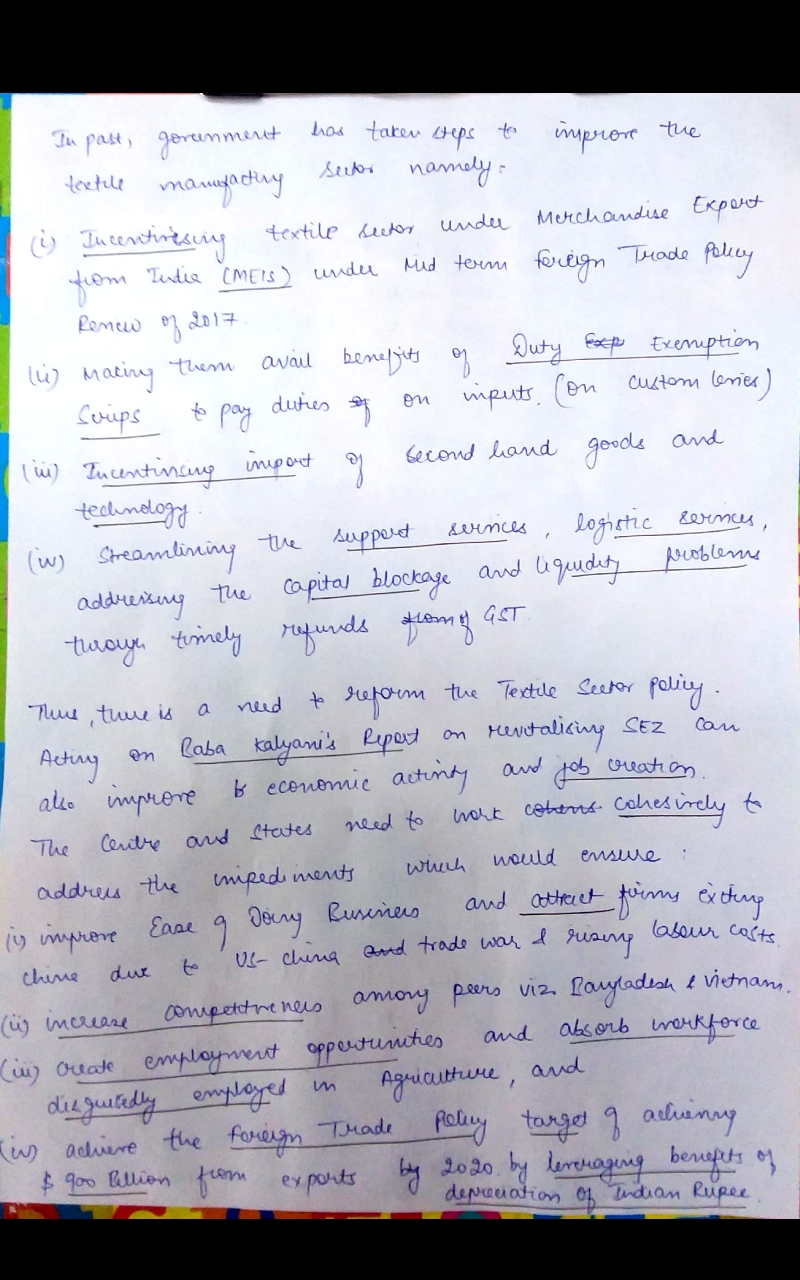 In past, government has taken steps to improve the
textile manufacting sector namely-
(i) Incentivising textile sector under Merchandise Export
from India (MEIS) under Mid term Foreign Trade Policy
Review of 2017.
(ii) Making them avail benefits of Duty Exp Exemption
Scrips to pay duties of on inputs. (on custom levies)
(iii) Incentivising import of second hand goods and
technology.
(iv) Streamlining the support services, logistic services,
addressing the capital blockage and liquidity problems
through timely refunds from of GST.
Thus, there is a need to reform the Textile Sector policy.
Acting on Baba Kalyani's Report on revitalising SEZ can
also improve economic activity and job creation.
The Centre and States need to work cohens cohesively to
address the impediments which would ensure :
(i) improve Ease of Doing Business and attract firms exiting
China due to US-China and trade war & rising labour costs.
(ii) increase competitiveness among peers viz. Bangladesh & Vietnam.
(iii) create employment opportunities and absorb workforce
disguisedly employed in Agriculture, and
(iv) achieve the Foreign Trade Policy target of achieving
$ 900 Billion from exports by 2020 by leveraging benefits of
depreciation of Indian Rupee.